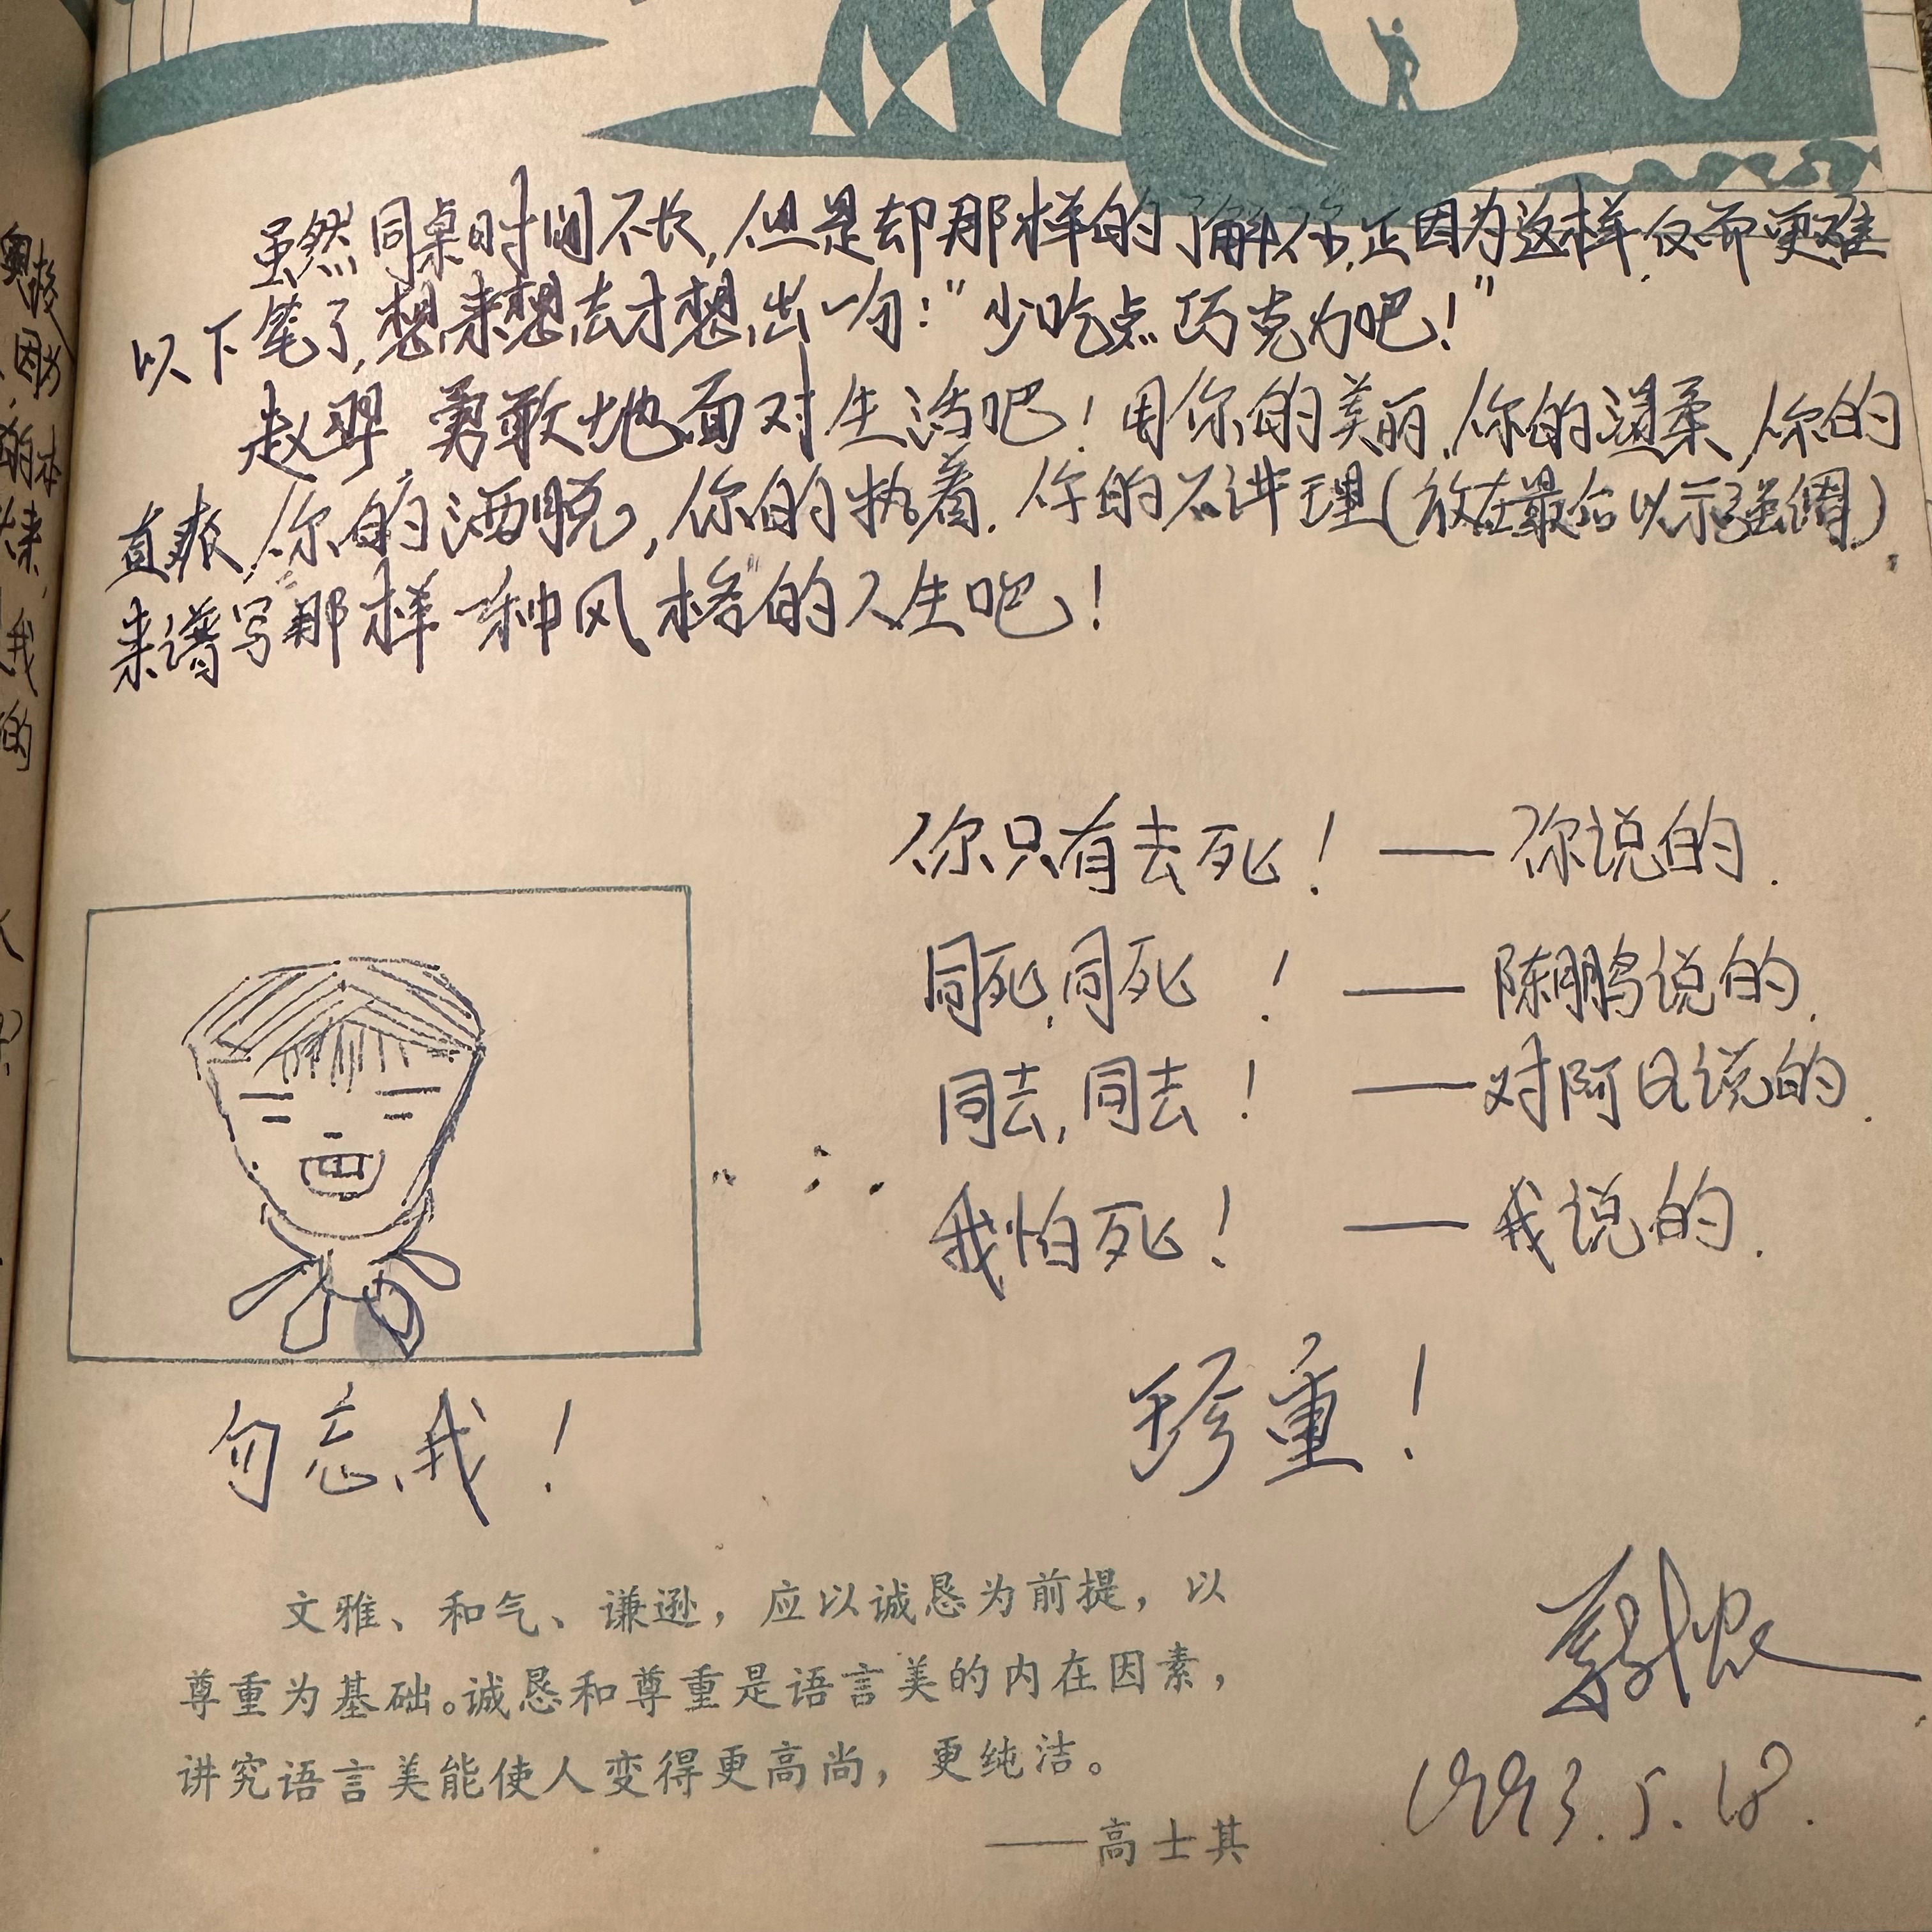 虽然同桌时间不长,但是却那样的了解你,正因为这样,反而更难
以下笔了,想来想去才想出一句:"少吃点巧克力吧!"
赵翌 勇敢地面对生活吧!用你的美丽,你的温柔,你的
直爽,你的洒脱,你的执着,你的不讲理(放在最后以示强调)
来谱写那样一种"风格"的人生吧!
你只有去死!——你说的.
同死,同死!——陈鹏说的.
同去,同去!——对阿Q说的.
我怕死!——我说的.
珍重!
勿忘我!
文雅、和气、谦逊,应以诚恳为前提,以
尊重为基础。诚恳和尊重是语言美的内在因素,
讲究语言美能使人变得更高尚,更纯洁。
——高士其
1993.5.18.